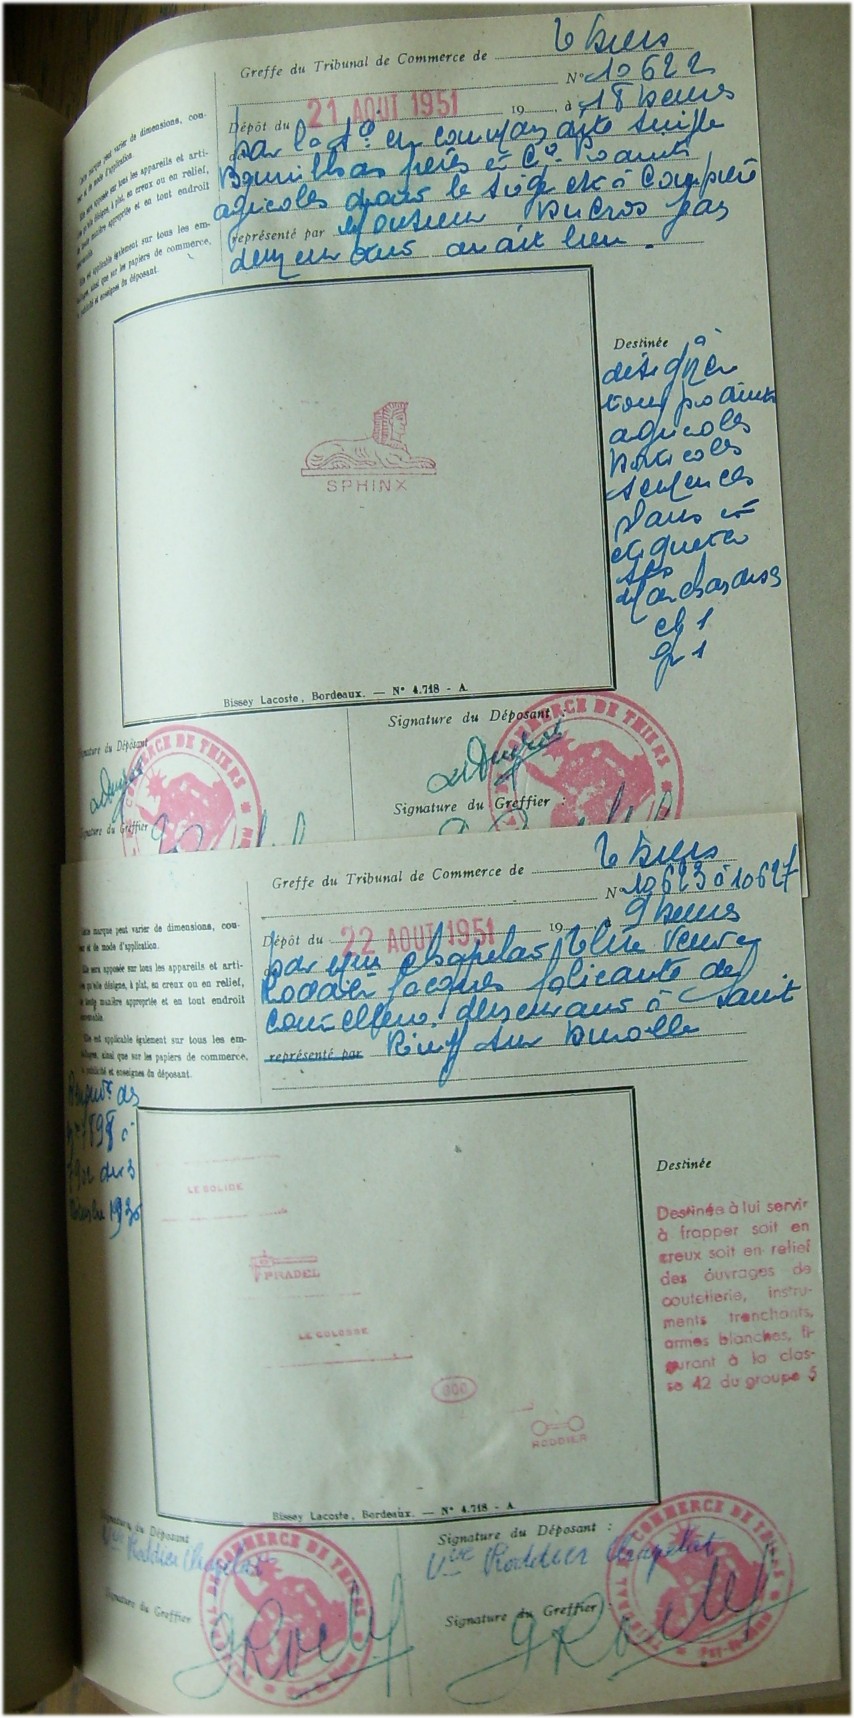 Greffe du Tribunal de Commerce de Thiers
N° 10622
Dépôt du 21 AOUT 1951 19 à 18 heures
par la
frères et Cie
agricoles dont le siège est à
représenté par Monsieur Ducros
demeurant
Cette marque peut varier de dimensions, cou-
leur et de mode d'application.
Elle sera apposée sur tous les appareils et arti-
cles qu'elle désigne, à plat, en creux ou en relief,
de toute manière appropriée et en tout endroit
convenable.
Elle est applicable également sur tous les em-
ballages, ainsi que sur les papiers de commerce,
publicité et enseignes du déposant.
SPHINX
Destinée
à
désigner
tous produits
agricoles
horticoles
semences
plans et
étiqueter
ses
marchandises
cl 1
gr 1
Bissey Lacoste, Bordeaux. — N° 4.718 - A.
Signature du Déposant
Signature du Déposant :
Signature du Greffier
Signature du Greffier :
COMMERCE DE THIERS
COMMERCE DE THIERS
Greffe du Tribunal de Commerce de Thiers
N° 10623 à 10627
Dépôt du 22 AOUT 1951 19 à 9 heures
par Mme Chapelat veuve
Roddier Jacques fabricante de
demeurant à Saint
représenté par Rémy sur Durolle
Cette marque peut varier de dimensions, cou-
leur et de mode d'application.
Elle sera apposée sur tous les appareils et arti-
cles qu'elle désigne, à plat, en creux ou en relief,
de toute manière appropriée et en tout endroit
convenable.
Elle est applicable également sur tous les em-
ballages, ainsi que sur les papiers de commerce,
publicité et enseignes du déposant.
LE SOLIDE
PRADEL
LE COLOSSE
000
RODDIER
Destinée
Destinée à lui servir
à frapper soit en
creux soit en relief
des ouvrages de
coutellerie, instru-
ments tranchants,
armes blanches, fi-
gurant à la clas-
se 12 du groupe 5
Bissey Lacoste, Bordeaux. — N° 4.718 - A.
Signature du Déposant
Signature du Déposant :
Vve Roddier Chapelat
Vve Roddier Chapelat
Signature du Greffier
Signature du Greffier :
TRIBUNAL DE COMMERCE DE THIERS
TRIBUNAL DE COMMERCE DE THIERS
Puy-de-Dôme